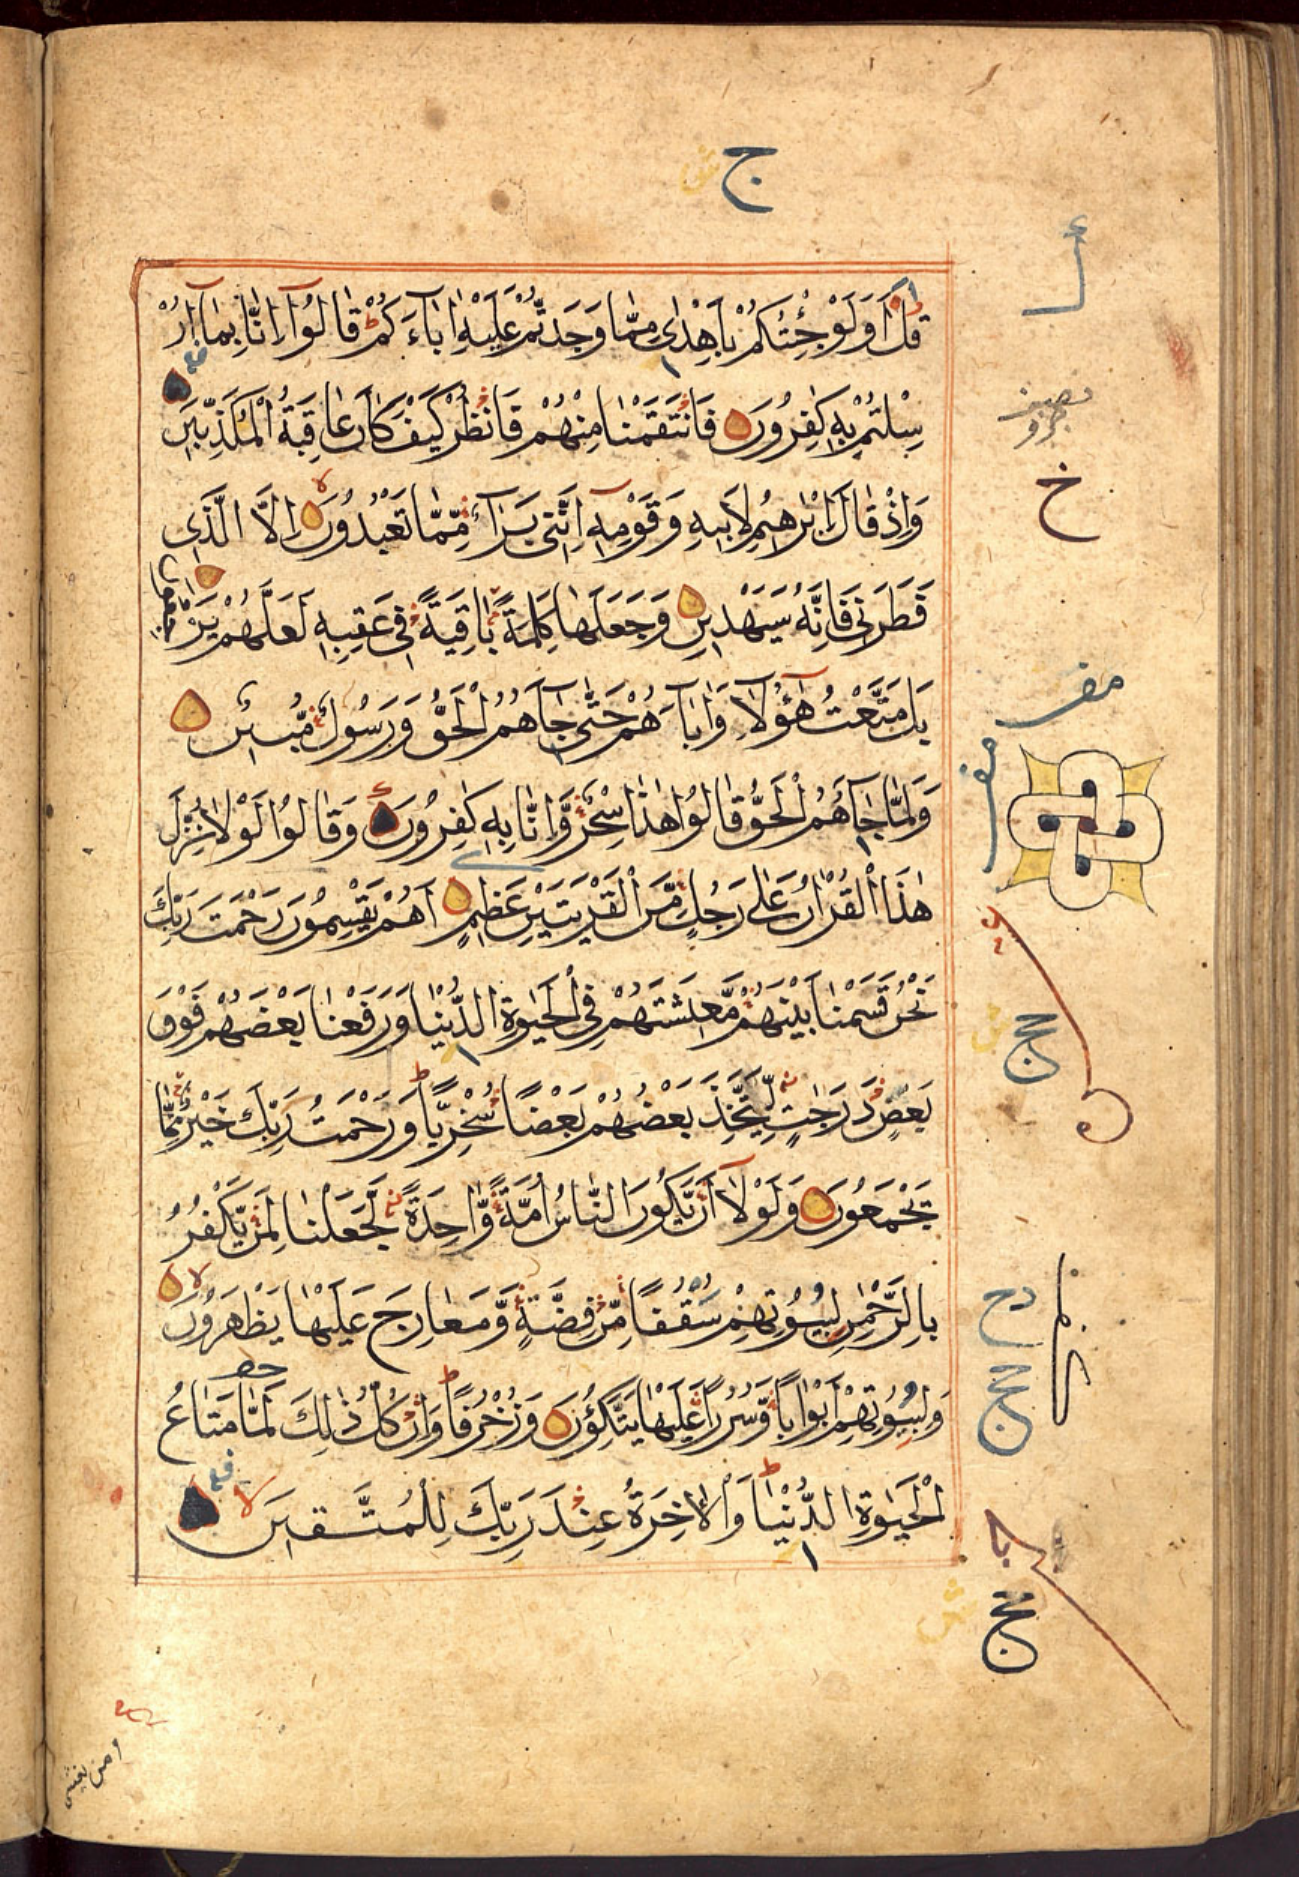 ج
قُلْ اَوَلَوْ جِئْتُكُمْ بِاَهْدٰى مِمَّا وَجَدْتُّمْ عَلَيْهِ اٰبَآءَكُمْ قَالُوْٓا اِنَّا بِمَآ اُرْ
سِلْتُمْ بِهٖ كٰفِرُوْنَ فَانْتَقَمْنَا مِنْهُمْ فَانْظُرْ كَيْفَ كَانَ عَاقِبَةُ الْمُكَذِّبِيْنَ
وَاِذْ قَالَ اِبْرٰهِيْمُ لِاَبِيْهِ وَقَوْمِهٖٓ اِنَّنِىْ بَرَآءٌ مِّمَّا تَعْبُدُوْنَ اِلَّا الَّذِى
فَطَرَنِىْ فَاِنَّهٗ سَيَهْدِيْنِ وَجَعَلَهَا كَلِمَةً بَاقِيَةً فِىْ عَقِبِهٖ لَعَلَّهُمْ يَرْجِعُوْنَ
بَلْ مَتَّعْتُ هٰٓؤُلَآءِ وَاٰبَآءَهُمْ حَتّٰى جَآءَهُمُ الْحَقُّ وَرَسُوْلٌ مُّبِيْنٌ
وَلَمَّا جَآءَهُمُ الْحَقُّ قَالُوْا هٰذَا سِحْرٌ وَّاِنَّا بِهٖ كٰفِرُوْنَ وَقَالُوْا لَوْلَا نُزِّلَ
هٰذَا الْقُرْاٰنُ عَلٰى رَجُلٍ مِّنَ الْقَرْيَتَيْنِ عَظِيْمٍ اَهُمْ يَقْسِمُوْنَ رَحْمَتَ رَبِّكَ
نَحْنُ قَسَمْنَا بَيْنَهُمْ مَّعِيْشَتَهُمْ فِى الْحَيٰوةِ الدُّنْيَا وَرَفَعْنَا بَعْضَهُمْ فَوْقَ
بَعْضٍ دَرَجٰتٍ لِّيَتَّخِذَ بَعْضُهُمْ بَعْضًا سُخْرِيًّا وَرَحْمَتُ رَبِّكَ خَيْرٌ مِّمَّا
يَجْمَعُوْنَ وَلَوْلَآ اَنْ يَّكُوْنَ النَّاسُ اُمَّةً وَّاحِدَةً لَّجَعَلْنَا لِمَنْ يَّكْفُرُ
بِالرَّحْمٰنِ لِبُيُوْتِهِمْ سُقُفًا مِّنْ فِضَّةٍ وَّمَعَارِجَ عَلَيْهَا يَظْهَرُوْنَ
وَلِبُيُوْتِهِمْ اَبْوَابًا وَّسُرُرًا عَلَيْهَا يَتَّكِئُوْنَ وَزُخْرُفًا وَاِنْ كُلُّ ذٰلِكَ لَمَّا مَتَاعُ
الْحَيٰوةِ الدُّنْيَا وَالْاٰخِرَةُ عِنْدَ رَبِّكَ لِلْمُتَّقِيْنَ